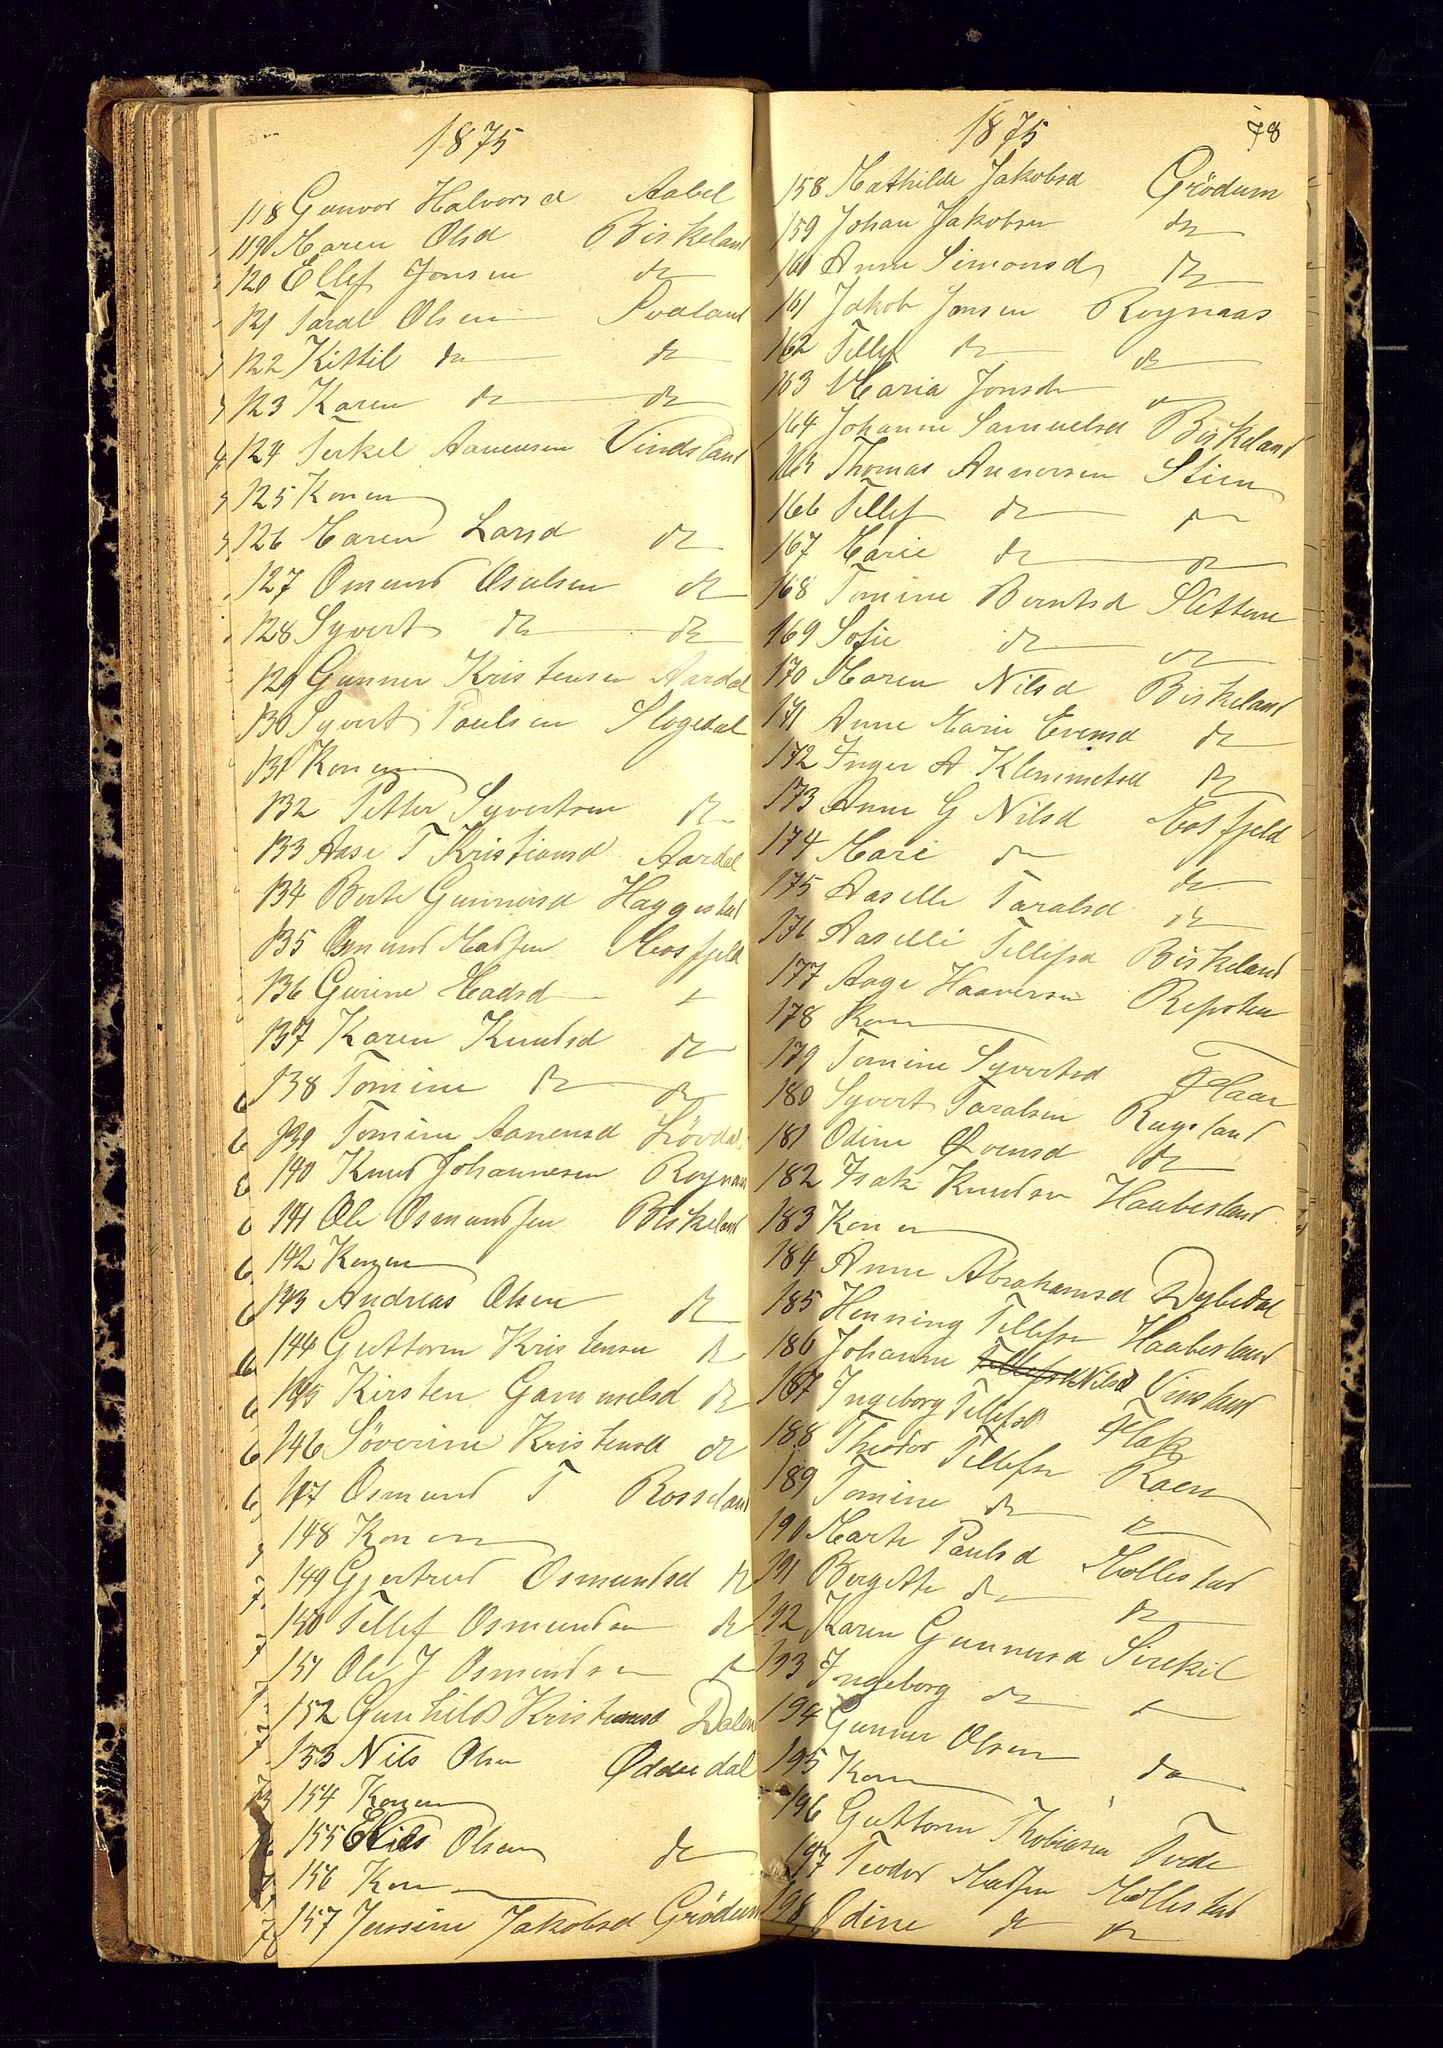 1875
118 Gunvor Halvorsd Aabel
119 Maren Olsd Birkeland
120 Ellef Jonsen do
121 Taral Olsen
122 Kittil do do
123 Karen do do
124 Terkel Aanensen Vindsland
125 Konen
126 Maren Larsd do
127 Omund Osulsen do
128 Syvert do do
129 Gunner Kristensen Aardal
130 Syvert Paulsen Slogedal
131 Konen
132 Petter Syvertsen do
133 Aase T Kristiansd Aardal
134 Berte Gunnersd Haggestad
135 Osmund Madsen Mosfjeld
136 Gurine Madsd
137 Karen Knutsd do
138 Tomine do do
139 Tomine Aanensd Løvdal
140 Knud Johannesen Roynaas
141 Ole Osmundsen Birkeland
142 Konen
143 Andreas Olsen do
144 Guttorm Kristensen do
145 Kirsten Gammelsd do
146 Søverine Kristensd do
147 Osmund T Rosseland
148 Konen
149 Gjertrud Osmundsd do
150 Tellef Osmundsen do
151 Ole J Osmundsen
152 Gunhild Kristensd Dalen
153 Nils Olsen Øddedal
154 Konen
155 Elias Olsen do
156 Kone
157 Jensine Jakobsd Grödum
1875
78
158 Mathilde Jakobsd Grödum
159 Johan Jakobsen do
160 Anne Simonsd do
161 Jakob Jonsen Roynaas
162 Tellef do do
163 Maria Jonsd do
164 Johanne Samuelsd Birkeland
165 Thomas Annersen Stien
166 Tellef do do
167 Marie do do
168 Tomine Berntsd Slettene
169 Sofie do do
170 Maren Nilsd Birkeland
171 Anne Marie Evensd do
172 Inger A Klemmetsd do
173 Anne G Nilsd Mosfjeld
174 Mari do do
175 Aaselle Taralsd do
176 Aaselli Tellefsd Birkeland
177 Aage Haaversen Repsten
178 Kone
179 Tomine Syvertsd Flaae
180 Syvert Taralsen Rugsland
181 Odine Øvensd do
182 Isak Knudsen Haabesland
183 Konen
184 Anne Abrahamsd Dybedal
185 Henning Tellefsen Haabesland
186 Johanne Tellefsd Nilsd Vinsland
187 Ingeborg Tellefsd Flak
188 Theodor Tellefsen Roen
189 Tomine do do
190 Marte Paulsd Mollestad
191 Bergette do do
192 Karen Gunnersd Sirekil
193 Ingeborg do
194 Gunner Olsen do
195 Kone
196 Guttorm Thobiasen Tvede
197 Teodor Madsen Mollestad
198 Odine do do